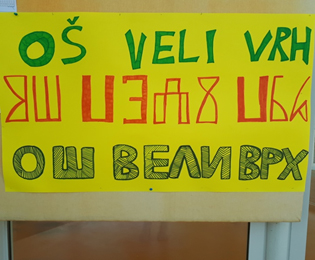 OŠ VELI VRH
ⰑⰞ ⰂⰅⰎⰉ ⰂⰓⰘ
ОШ ВЕЛИ ВРХ